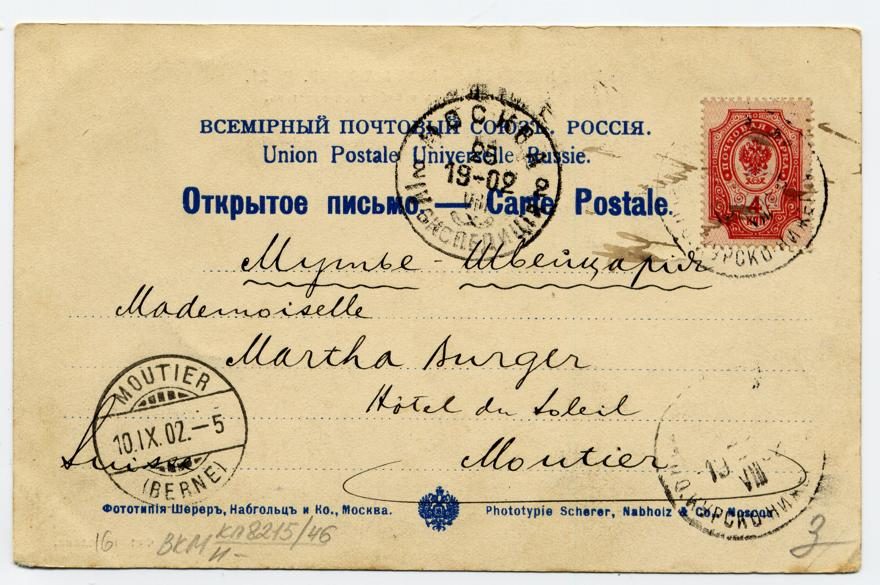 ВСЕМІРНЫЙ ПОЧТОВЫЙ СОЮЗЪ. РОССІЯ.
Union Postale Universelle Russie.
Открытое письмо. — Carte Postale.
МОСКВА
25
19-02
VIII
ЭКСПЕДИЦІЯ
ПОЧТОВАЯ МАРКА
4
КУРСКО-НИЖЕ
Мутье - Швейцарія
Mademoiselle
Martha Burger
Hôtel du Soleil
Moutier
Suisse
MOUTIER
10.IX.02.-5
(BERNE)
КУРСКО-НИЖ
Фототипія Шереръ, Набгольцъ и Ко., Москва.
Phototypie Scherer, Nabholz & Co., Moscou
16
ВКМ КП8215/46
И-
3